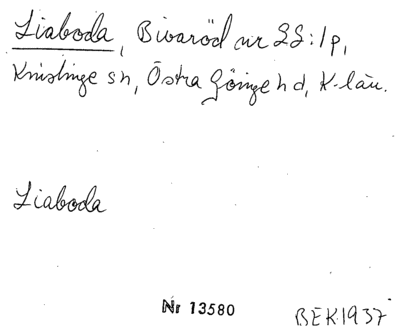 Liaboda, Bivaröd nr 22:1 p,
Knislinge sn, Östra Göinge hd, K-län.
Liaboda
Nr 13580
BEK 1937